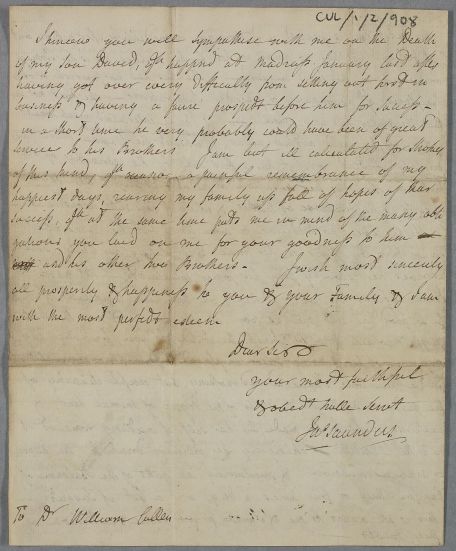 CUL/1/2/908
I know you will sympathise with me on the Death
of my Son David, qch happned at madrass January last after
having got over every difficulty from setting out first in
business & having a faire prospect before him for success -
in a short time he very probably could have been of great
service to his Brothers I am but ill calculated for shocks
of this kind, qch occasion a painful remembrance of my
happiest days, rearing my family up full of hopes of their
success, qch at the same time puts me in mind of the many obli
gations you laid on me for your goodness to him
and his other two Brothers - I wish most sincerely
all prosperity & happiness to you & your Family & I am
with the most perfect esteem
Dear Sir
your most faithful
& obedt hulle Servt
Jas Saunders
To Dr William Cullen